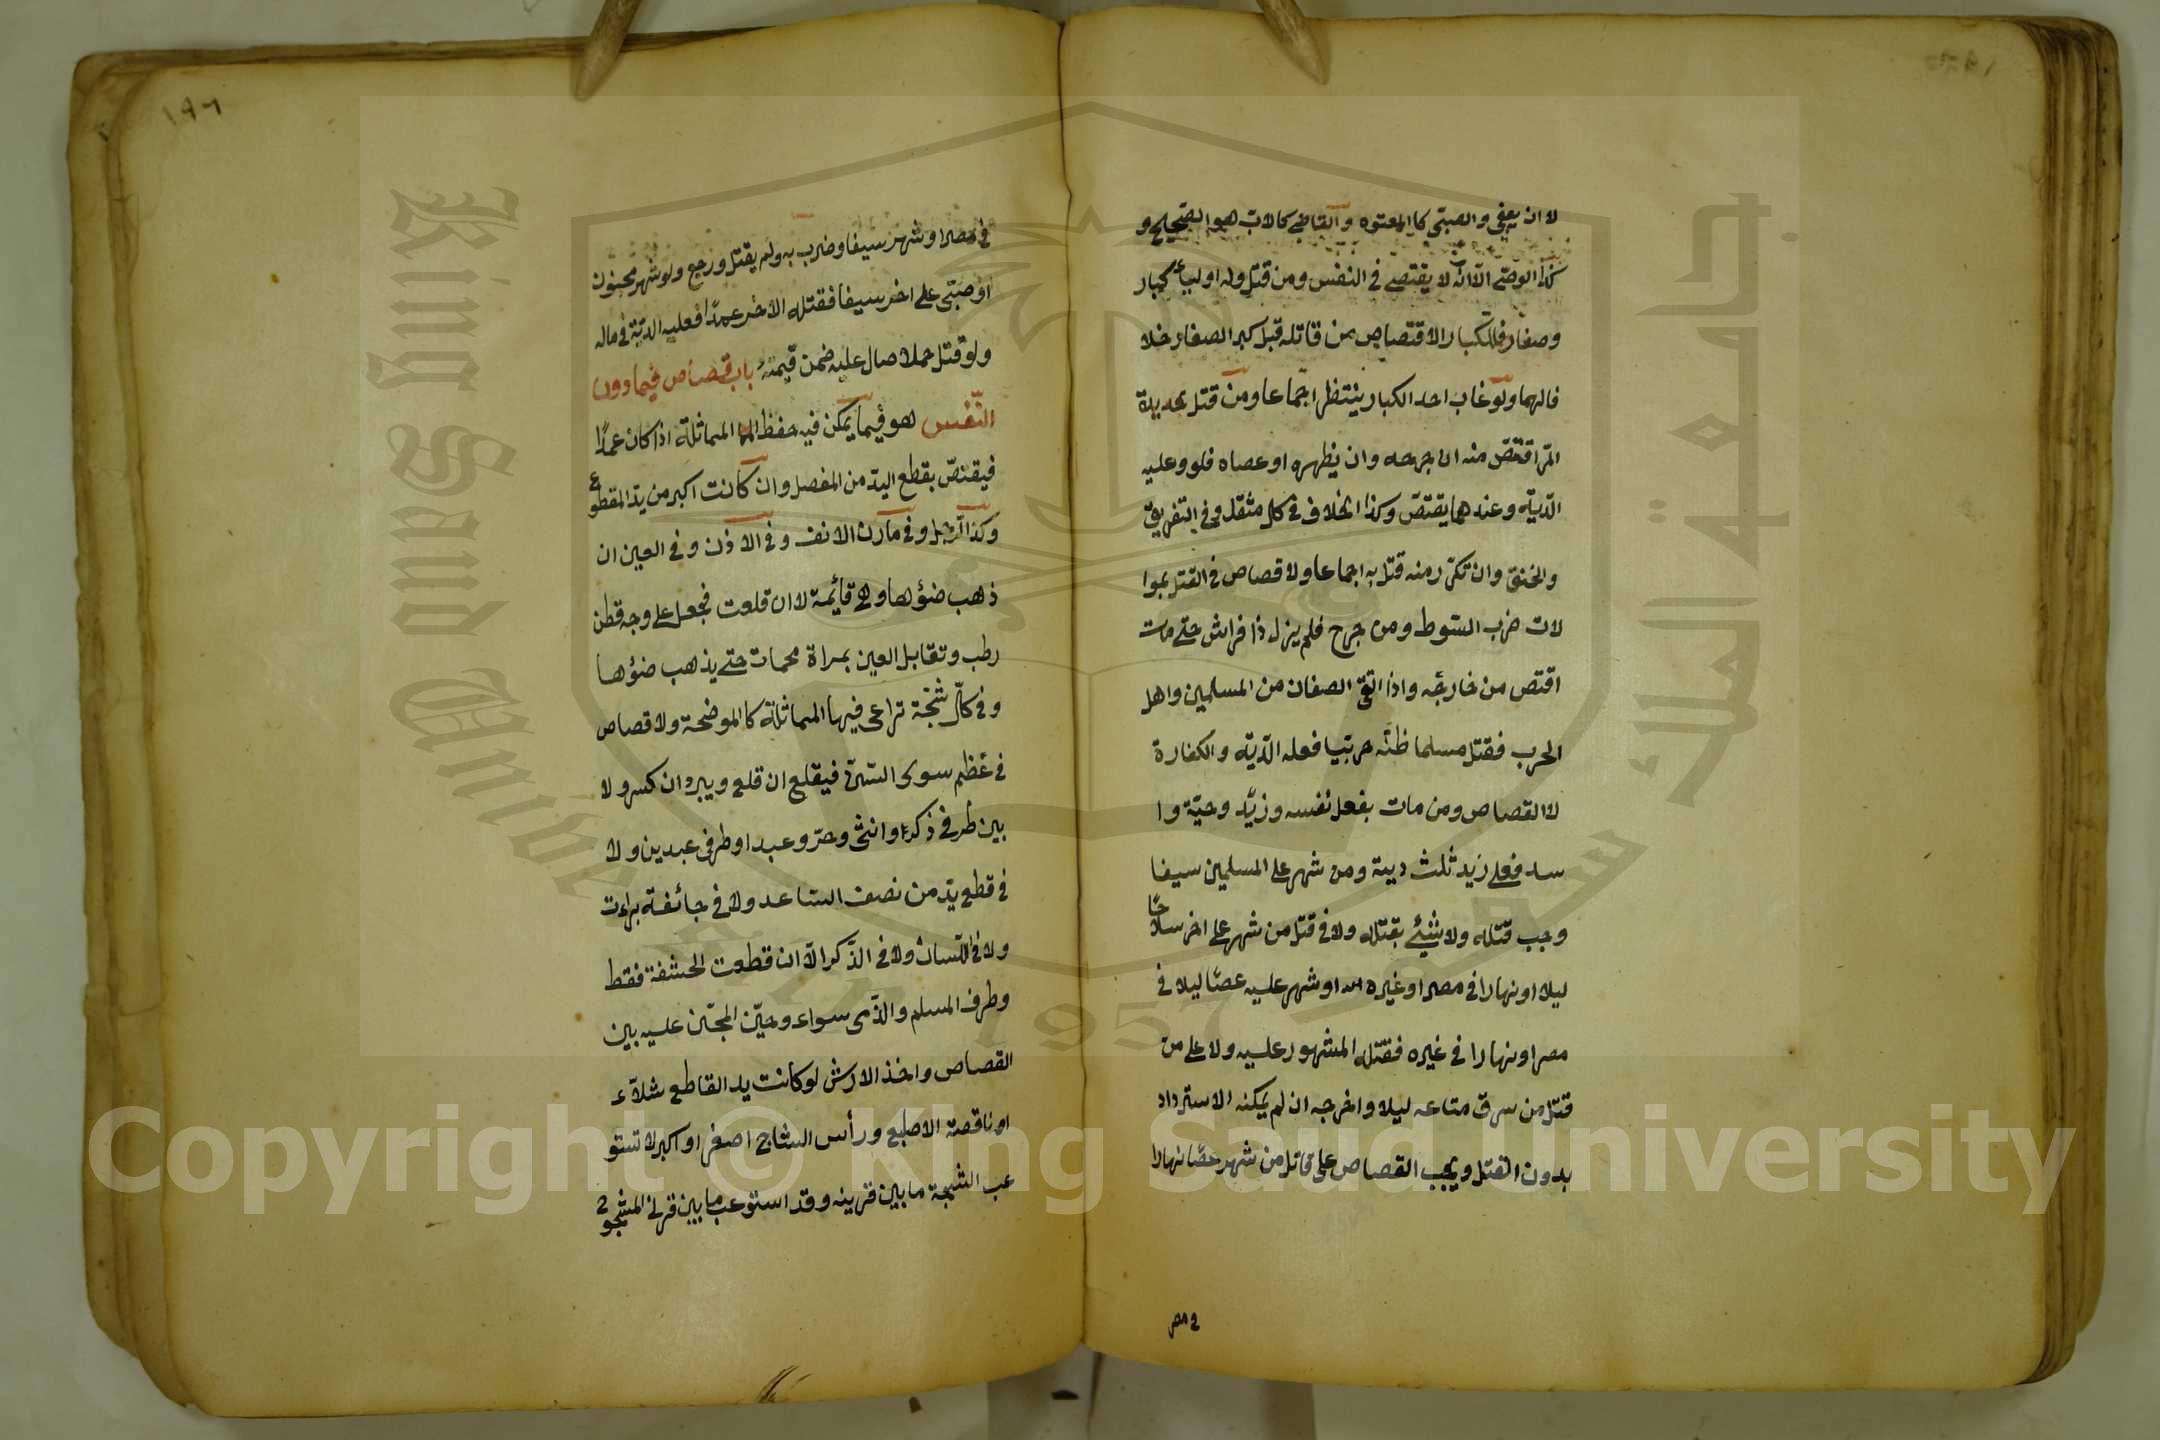 لا ان يعفى والصبى كالمعتوه والقاضى كالاب هو الصحيح و
كذا الوصى الا انه لا يقتص فى النفس ومن قتل وله اولياء كبار
وصغار فللكبار الاقتصاص من قاتله قبل كبر الصغار خلا
فالهما ولو غاب احد الكبار ينتظر اجماعا ومن قتل بحديدة
المر اقتص منه ان جرحه وان بظهره او عصاه فلو وعليه
الدية وعندهما يقتص وكذا الخلاف فى كل مثقل وفى التغريق
والخنق وان تكرر منه قتل به اجماعا ولا قصاص فى القتل بموا
لات ضرب السوط ومن جرح فلم يزل ذا فراش حتى مات
اقتص من خارجه واذا التقى الصفان من المسلمين واهل
الحرب فقتل مسلما ظنه حربيا فعله الدية والكفارة
لا القصاص ومن مات بفعل نفسه وزيد وحية وا
سد فعلى زيد ثلث دية ومن شهر على المسلمين سيفا
وجب قتله ولا شيئ بقتله ولا فى قتل من شهر على اخر سلاحا
ليلا او نهارا فى مصر او غيره او شهر عليه عصا ليلا فى
مصر او نهارا فى غيره فقتله المشهور عليه ولا على من
قتل من سرق متاعه ليلا واخرجه ان لم يمكنه الاسترداد
بدون القتل ويجب القصاص على قاتل من شهر عصا نهارا
فى مصر
١٩٦
فى مصر او شهر سيفا وضرب به ولم يقتل ورجع ولو شهر مجنون
او صبى على اخر سيفا فقتله الاخر عمدا فعليه الدية فى ماله
ولو قتل جملا صال عليه ضمن قيمته باب قصاص فيما دون
النفس هو فيما يمكن فيه حفظ المماثلة اذا كان عمدا
فيقتص بقطع اليد من المفصل وان كانت اكبر من يد المقطوع
وكذا الرجل وفى مارن الانف وفى الاذن وفى العين ان
ذهب ضوؤها وهى قائمة لا ان قلعت فجعل على وجه قطن
رطب وتقابل العين بمراة محمات حتى يذهب ضوؤها
وفى كل شجة تراعى فيها المماثلة كالموضحة ولا قصاص
فى عظم سوى السن فيقلع ان قلع ويبرد ان كسر ولا
بين طرفى ذكر وانثى وحر وعبد او طرفى عبدين ولا
فى قطع يد من نصف الساعد ولا فى جائفة برءت
ولا فى اللسان ولا فى الذكر الا ان قطعت الحشفة فقط
وطرف المسلم والذمى سواء وخير المجنى عليه بين
القصاص واخذ الارش لو كانت يد القاطع شلاء
او ناقصة الاصابع ورأس الشاج اصغر او اكبر لا تستو
عب الشجة ما بين قرنيه وقد استوعب ما بين قرنى المشجوج
King Saud University
جامعة الملك سعود
1957
Copyright © King Saud University